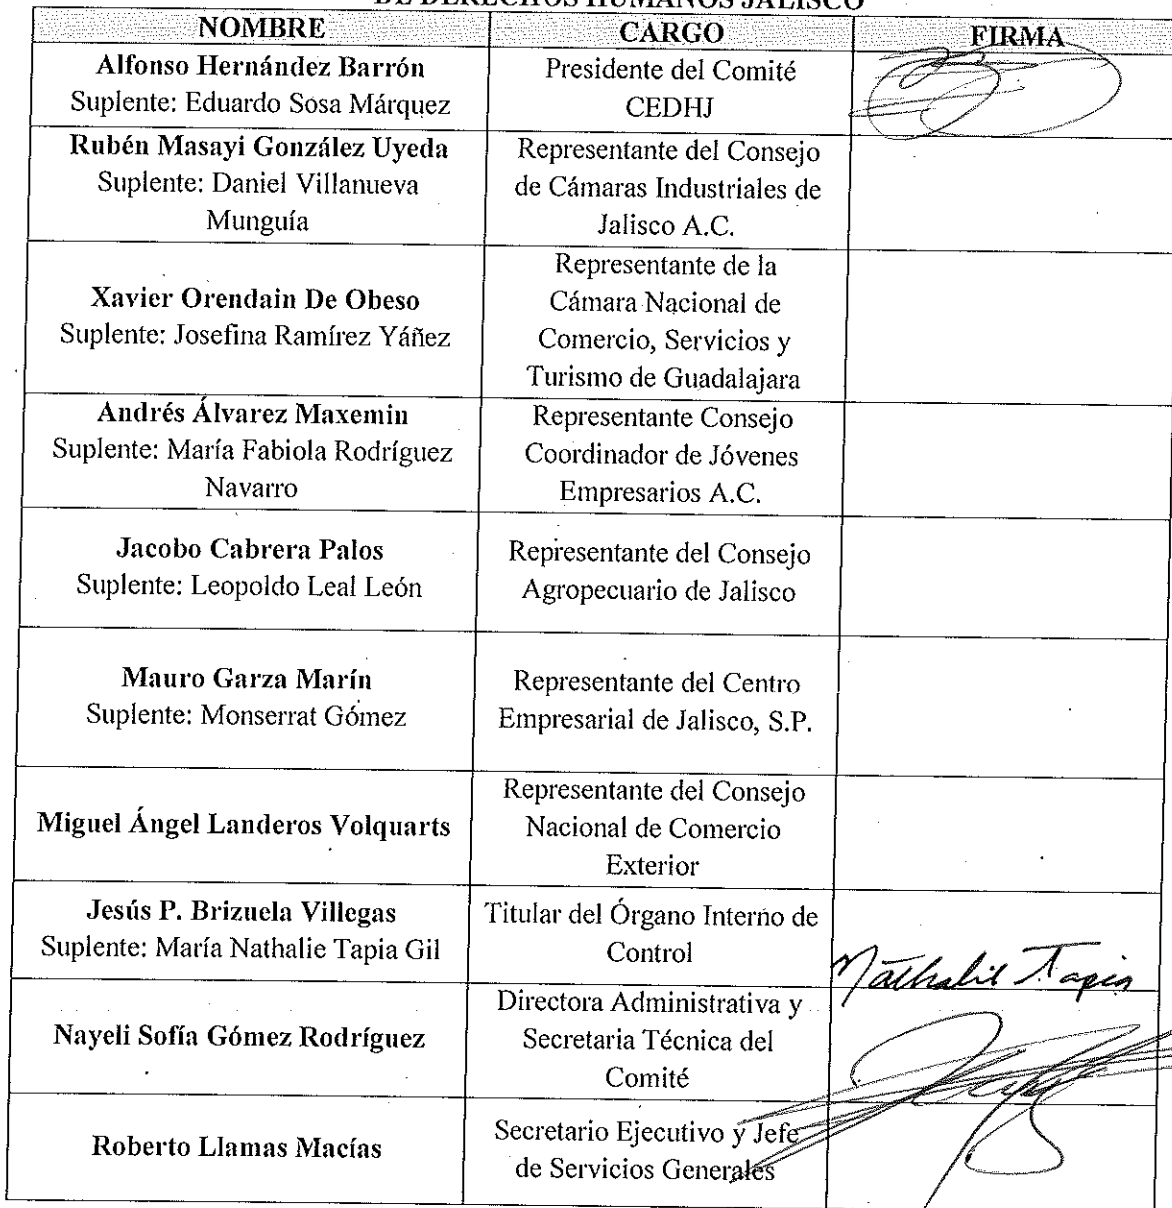 DE DERECHOS HUMANOS JALISCO
NOMBRE CARGO FIRMA
Alfonso Hernández Barrón
Suplente: Eduardo Sosa Márquez
Presidente del Comité
CEDHJ
Rubén Masayi González Uyeda
Suplente: Daniel Villanueva
Munguía
Representante del Consejo
de Cámaras Industriales de
Jalisco A.C.
Xavier Orendain De Obeso
Suplente: Josefina Ramírez Yáñez
Representante de la
Cámara Nacional de
Comercio, Servicios y
Turismo de Guadalajara
Andrés Álvarez Maxemin
Suplente: María Fabiola Rodríguez
Navarro
Representante Consejo
Coordinador de Jóvenes
Empresarios A.C.
Jacobo Cabrera Palos
Suplente: Leopoldo Leal León
Representante del Consejo
Agropecuario de Jalisco
Mauro Garza Marín
Suplente: Monserrat Gómez
Representante del Centro
Empresarial de Jalisco, S.P.
Miguel Ángel Landeros Volquarts
Representante del Consejo
Nacional de Comercio
Exterior
Jesús P. Brizuela Villegas
Suplente: María Nathalie Tapia Gil
Titular del Órgano Interno de
Control
Nathalie Tapia
Nayeli Sofía Gómez Rodríguez
Directora Administrativa y
Secretaria Técnica del
Comité
Roberto Llamas Macías
Secretario Ejecutivo y Jefe
de Servicios Generales